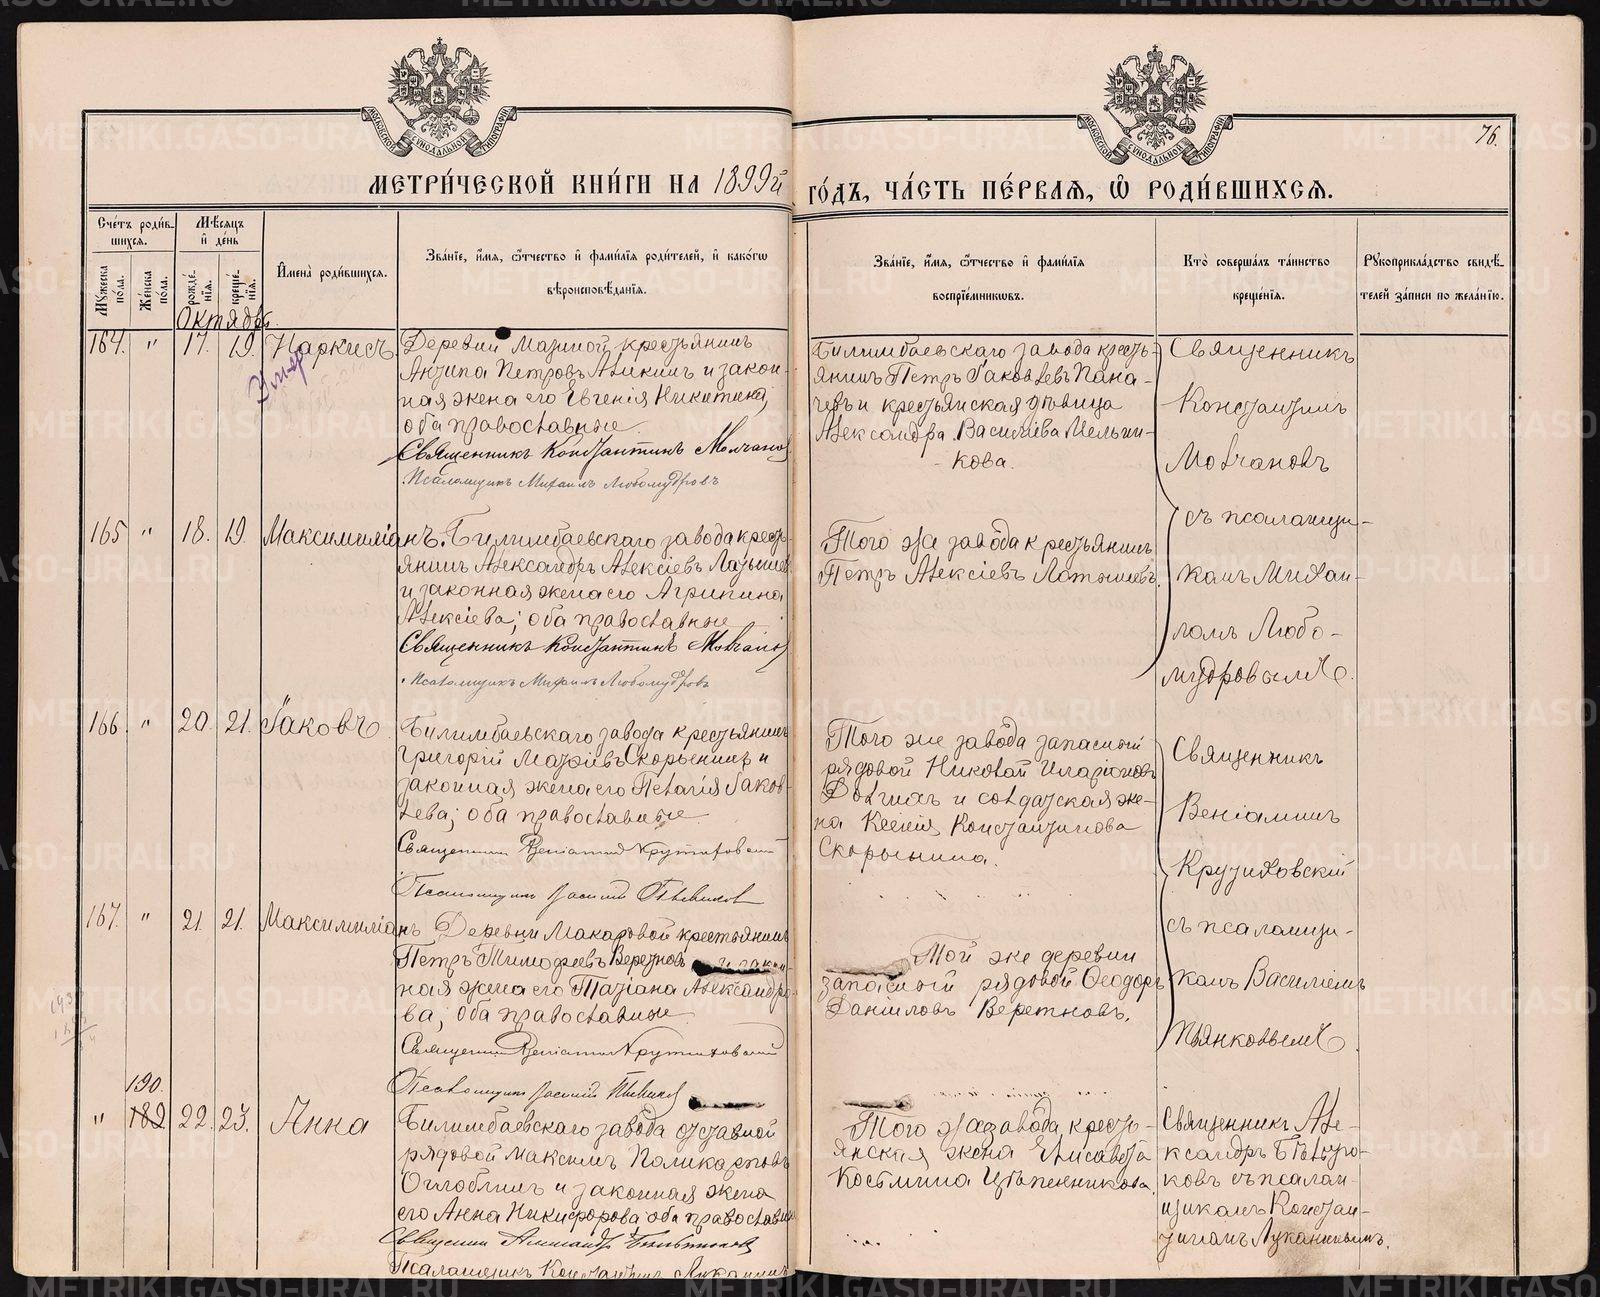 МОСКОВСКОЙ СѴНОДАЛЬНОЙ ТИПОГРАФІИ
МОСКОВСКОЙ СѴНОДАЛЬНОЙ ТИПОГРАФІИ
76.
МЕТРИ́ЧЕСКОЙ КНИ́ГИ НА 1899й
ГО́ДЪ, ЧА́СТЬ ПЕ́РВАѦ, Ѽ РОДИ́ВШИХСѦ.
Сче́тъ роди́в-
шихсѧ.
Мѣ́сѧцъ
и҆ де́нь
Мꙋ́жеска по́ла.
Же́нска по́ла.
рожде́нїѧ.
креще́нїѧ.
И҆мена̀ роди́вшихсѧ.
Зва́нїе, и҆́мѧ, ѻ҆́тчество и҆ фами́лїѧ роди́телей, и҆ како́гѡ
вѣроисповѣ́данїѧ.
Зва́нїе, и҆́мѧ, ѻ҆́тчество и҆ фами́лїѧ
воспрїе́мникѡвъ.
Кто̀ соверша́лъ та́инство
креще́нїѧ.
Рꙋкоприкла́дство свидѣ́-
телей за́писи по жела́нїю.
Октябрь.
164. " 17. 19. Наркисъ.
Умер
Деревни Мазиной крестьянинъ
Антипа Петровъ Аликинъ и закон-
ная жена его Евгенія Никитина,
оба православные.
Священникъ Константинъ Молчановъ
Псаломщикъ Михаилъ Любомудровъ
Билимбаевскаго завода кресть-
янинъ Петръ Іаковлевъ Пана-
чевъ и крестьянская дѣвица
Александра Василіева Мельни-
кова.
Священникъ
Константинъ
Молчановъ
съ псаломщи-
комъ Михаи-
ломъ Любо-
мудровымъ.
165 " 18. 19. Максимиліанъ.
Билимбаевскаго завода кресть-
янинъ Александръ Алексіевъ Латышевъ
и законная жена его Агрипина
Алексіева; оба православные
Священникъ Константинъ Молчановъ
Псаломщикъ Михаилъ Любомудровъ
Того же завода крестьянинъ
Петръ Алексіевъ Латышевъ.
166 " 20. 21. Іаковъ.
Билимбаевскаго завода крестьянинъ
Григорій Матфіевъ Скорынинъ и
законная жена его Пелагія Іаков-
лева; оба православные
Священникъ Веніаминъ Крутиховскій
Псаломщикъ Василій Пьянковъ
Того же завода запасный
рядовой Николай Иларіоновъ
Долгихъ и солдатская же-
на Ксенія Константинова
Скорынина.
Священникъ
Веніаминъ
Крутиховскій
съ псаломщи-
комъ Василіемъ
Пьянковымъ.
167. " 21. 21. Максимиліанъ
Деревни Макаровой крестьянинъ
Петръ Тимофеевъ Веретновъ и закон-
ная жена его Татіана Александро-
ва; оба православные
Священникъ Веніаминъ Крутиховскій
Псаломщикъ Василій Пьянковъ
Той же деревни
запасный рядовой Ѳеодоръ
Даніиловъ Веретновъ.
190.
" 182 22. 23. Анна
Билимбаевскаго завода отставной
рядовой Максимъ Поликарповъ
Оглоблинъ и законная жена
его Анна Никифорова оба православные
Священникъ Александръ
Псаломщикъ Константинъ Лукanинъ
Того же завода кресть-
янская жена Елисавета
Космина Цѣпенникова.
Священникъ Але-
ксандръ
ковъ съ псалом-
щикомъ Констан-
тиномъ Луканинымъ.